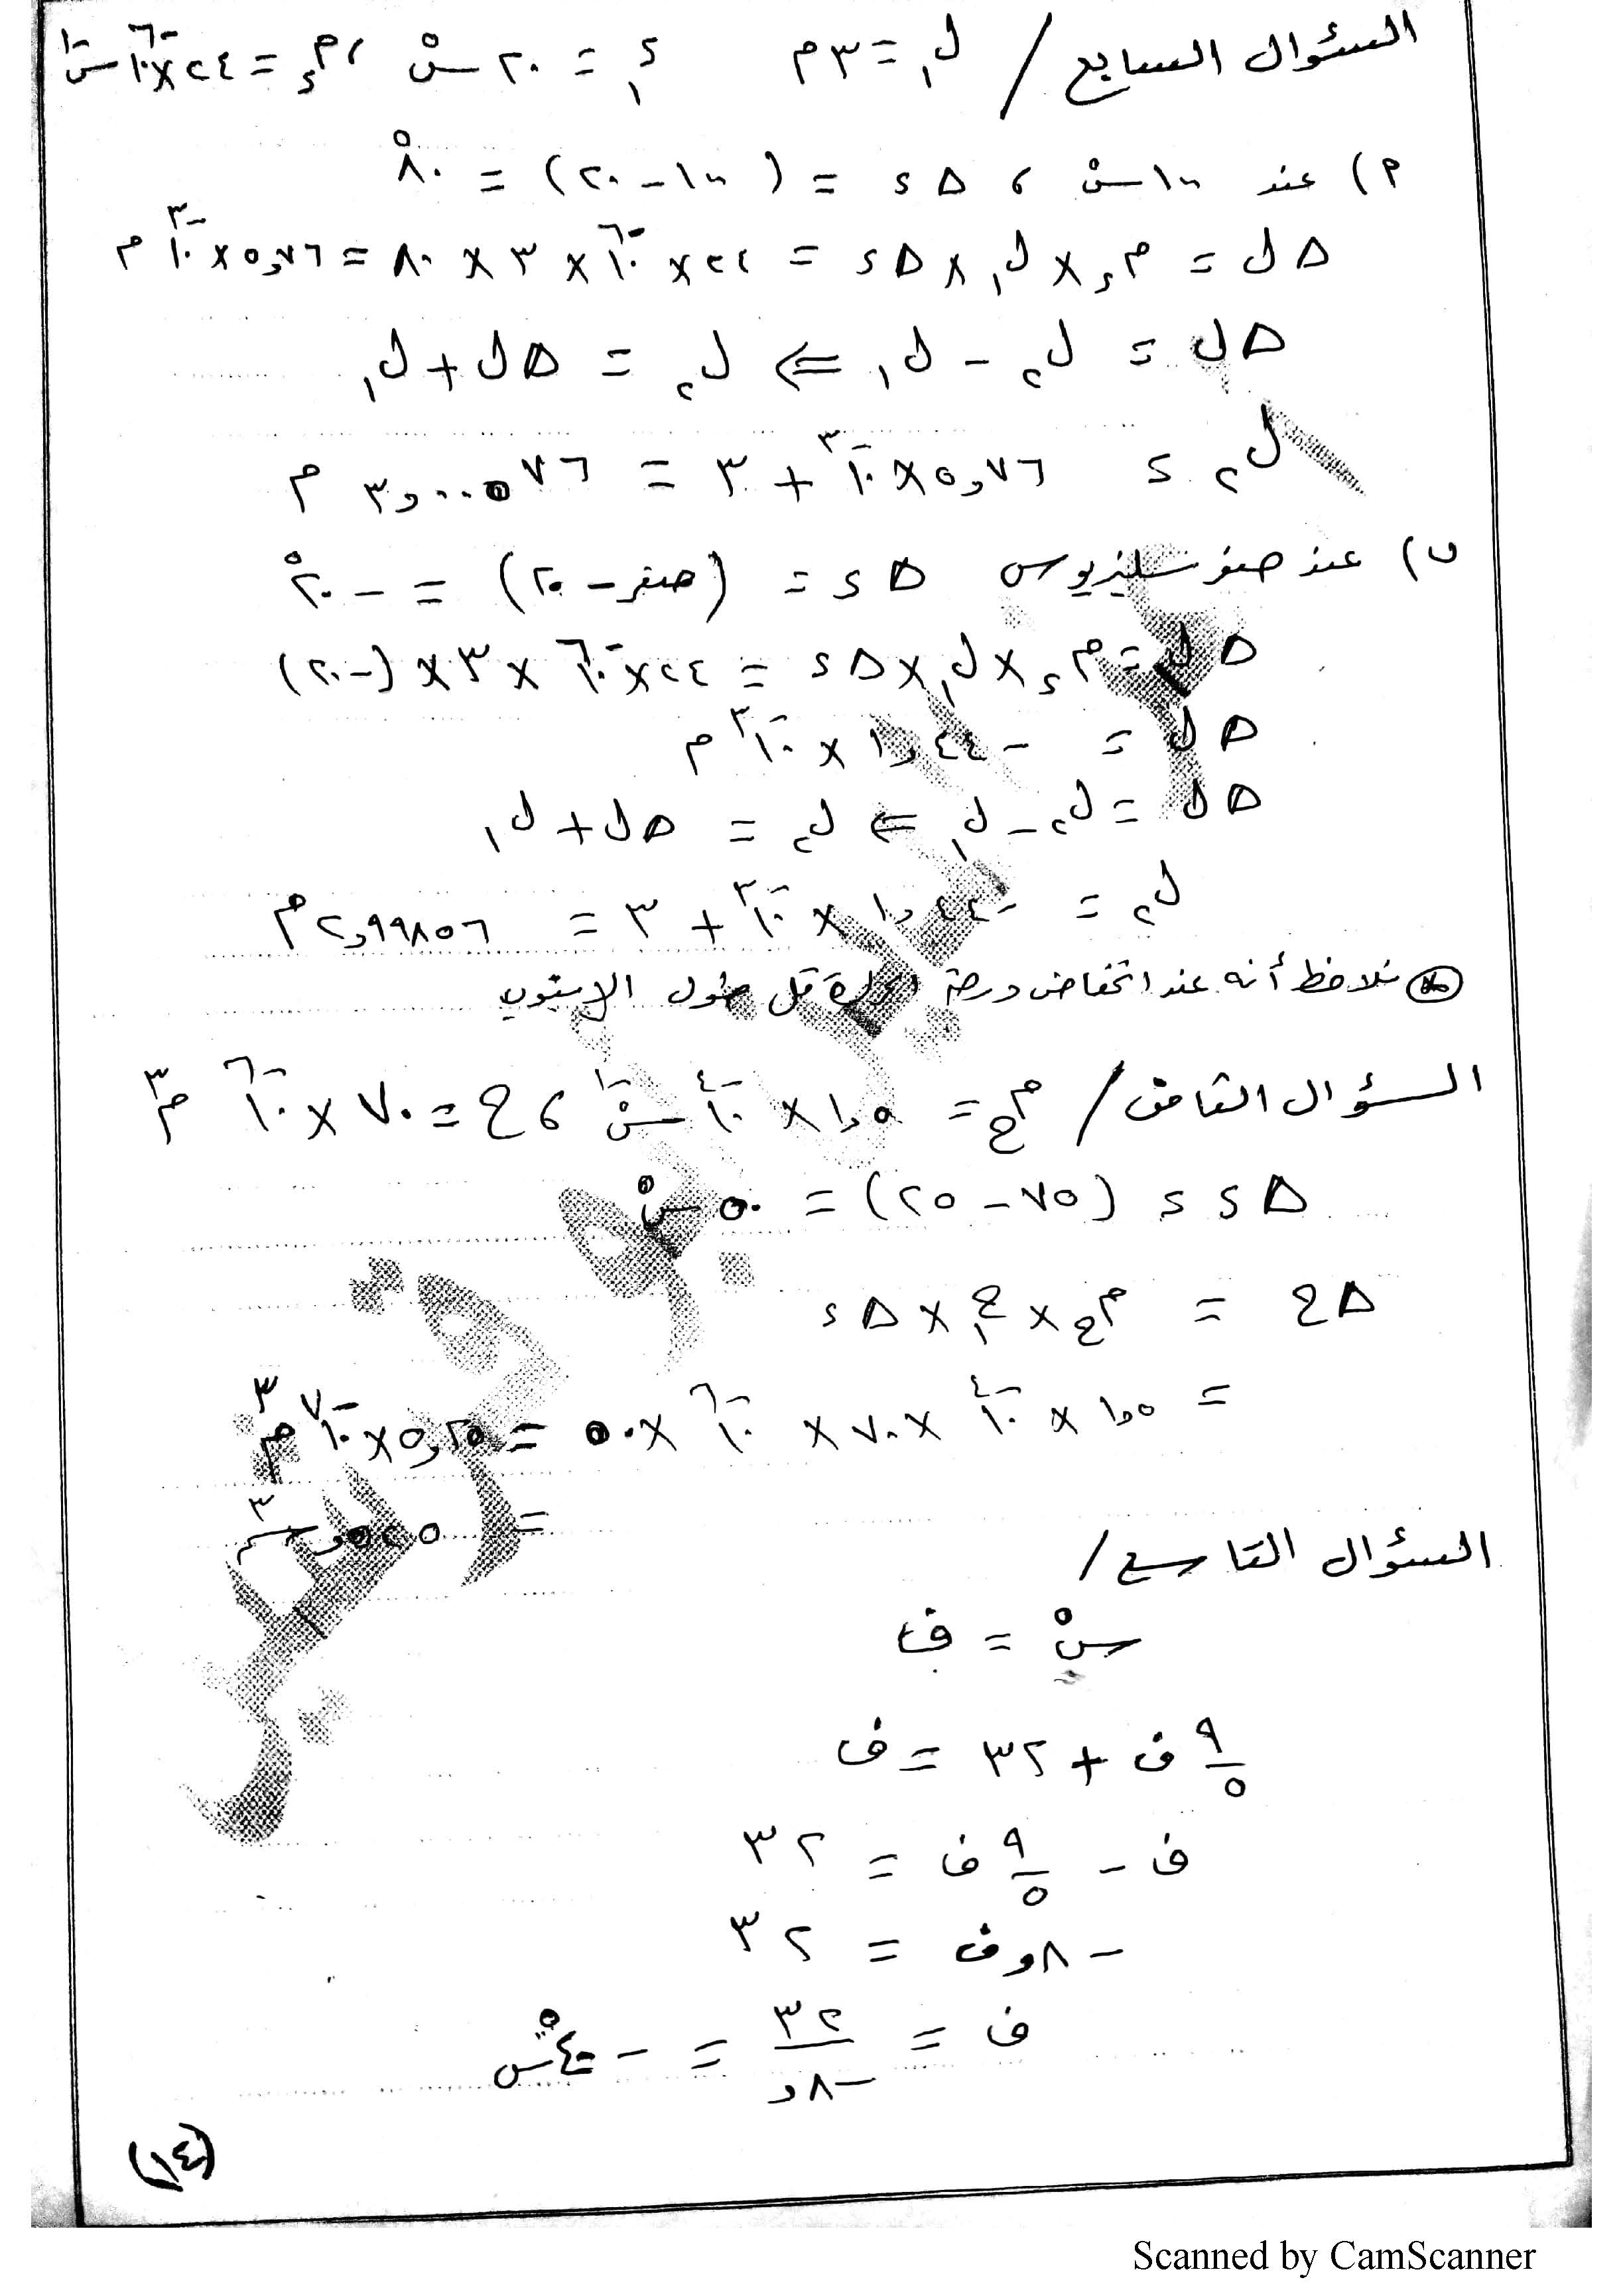 السؤال السابع / ل₁ = ٣م د₁ = ٢٠ سْ ، م_د = ٢٤×١٠^-٦ سْ^-١
٢) عند ١٠٠ سْ ، Δد = (١٠٠ - ٢٠) = ٨٠ْ
Δل = م_د × ل₁ × Δد = ٢٤×١٠^-٦ × ٣ × ٨٠ = ٥,٧٦×١٠^-٣ م
Δل = ل₂ - ل₁ ⇐ ل₂ = Δل + ل₁
ل₂ = ٥,٧٦×١٠^-٣ + ٣ = ٣,٠٠٥٧٦ م
ب) عند صفر سليزيوس Δد = (صفر - ٢٠) = -٢٠ْ
Δل = م_د × ل₁ × Δد = ٢٤×١٠^-٦ × ٣ × (-٢٠)
Δل = -١,٤٤ × ١٠^-٣ م
Δل = ل₂ - ل₁ ⇐ ل₂ = Δل + ل₁
ل₂ = -١,٤٤ × ١٠^-٣ + ٣ = ٢,٩٩٨٥٦ م
نلاحظ أنه عند انخفاض درجة الحرارة قل طول الانبوب
السؤال الثامن / م_ح = ١,٥ × ١٠^-٤ سْ^-١ ، ح = ٧٠ × ١٠^-٦ م^٣
Δد = (٧٥ - ٢٥) = ٥٠ سْ
Δح = م_ح × ح₁ × Δد
= ١,٥ × ١٠^-٤ × ٧٠ × ١٠^-٦ × ٥٠ = ٥,٢٥×١٠^-٧ م^٣
=
السؤال التاسع /
سْ = ف
٩/٥ ف + ٣٢ = ف
ف - ٩/٥ ف = ٣٢
-٨,ف = ٣٢
ف = ٣٢/-٨, = -٤٠ سْ
(١٤)
Scanned by CamScanner